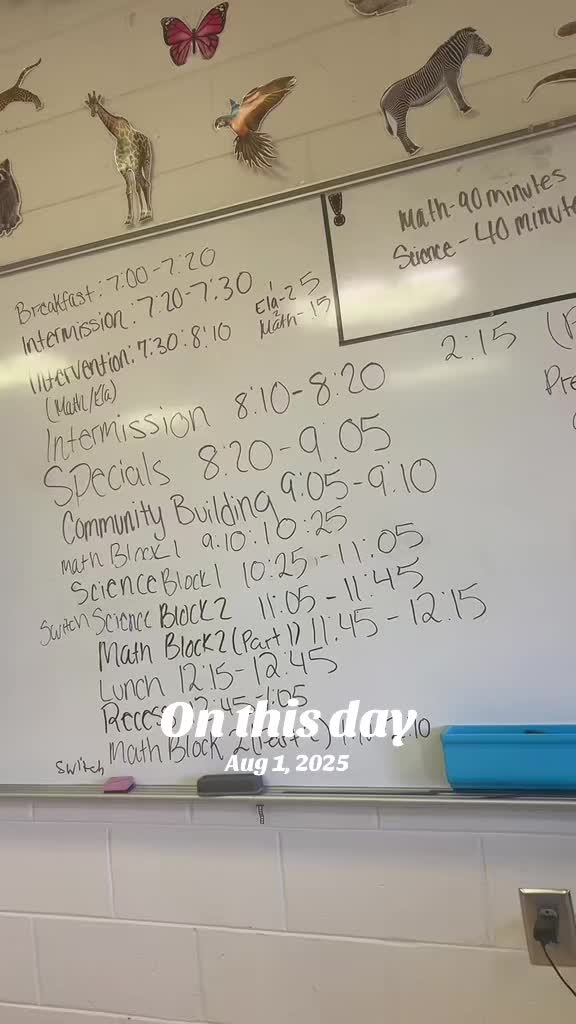 Math-90 minutes
Science - 40 minute
Breakfast: 7:00-7:20
Intermission: 7:20-7:30
Intervention: 7:30:8:10
(Math/Ela)
1
Ela-25
2
Math-15
2:15
Intermission 8:10-8:20
Specials 8:20-9:05
Community Building 9:05-9:10
math Block 1 9:10:10:25
Science Block 1 10:25-11:05
Switch Science Block 2 11:05-11:45
Math Block 2 (Part 1) 11:45-12:15
Lunch 12:15-12:45
Recess 12:45-1:05
On this day
Math Block 2
Aug 1, 2025
Switch